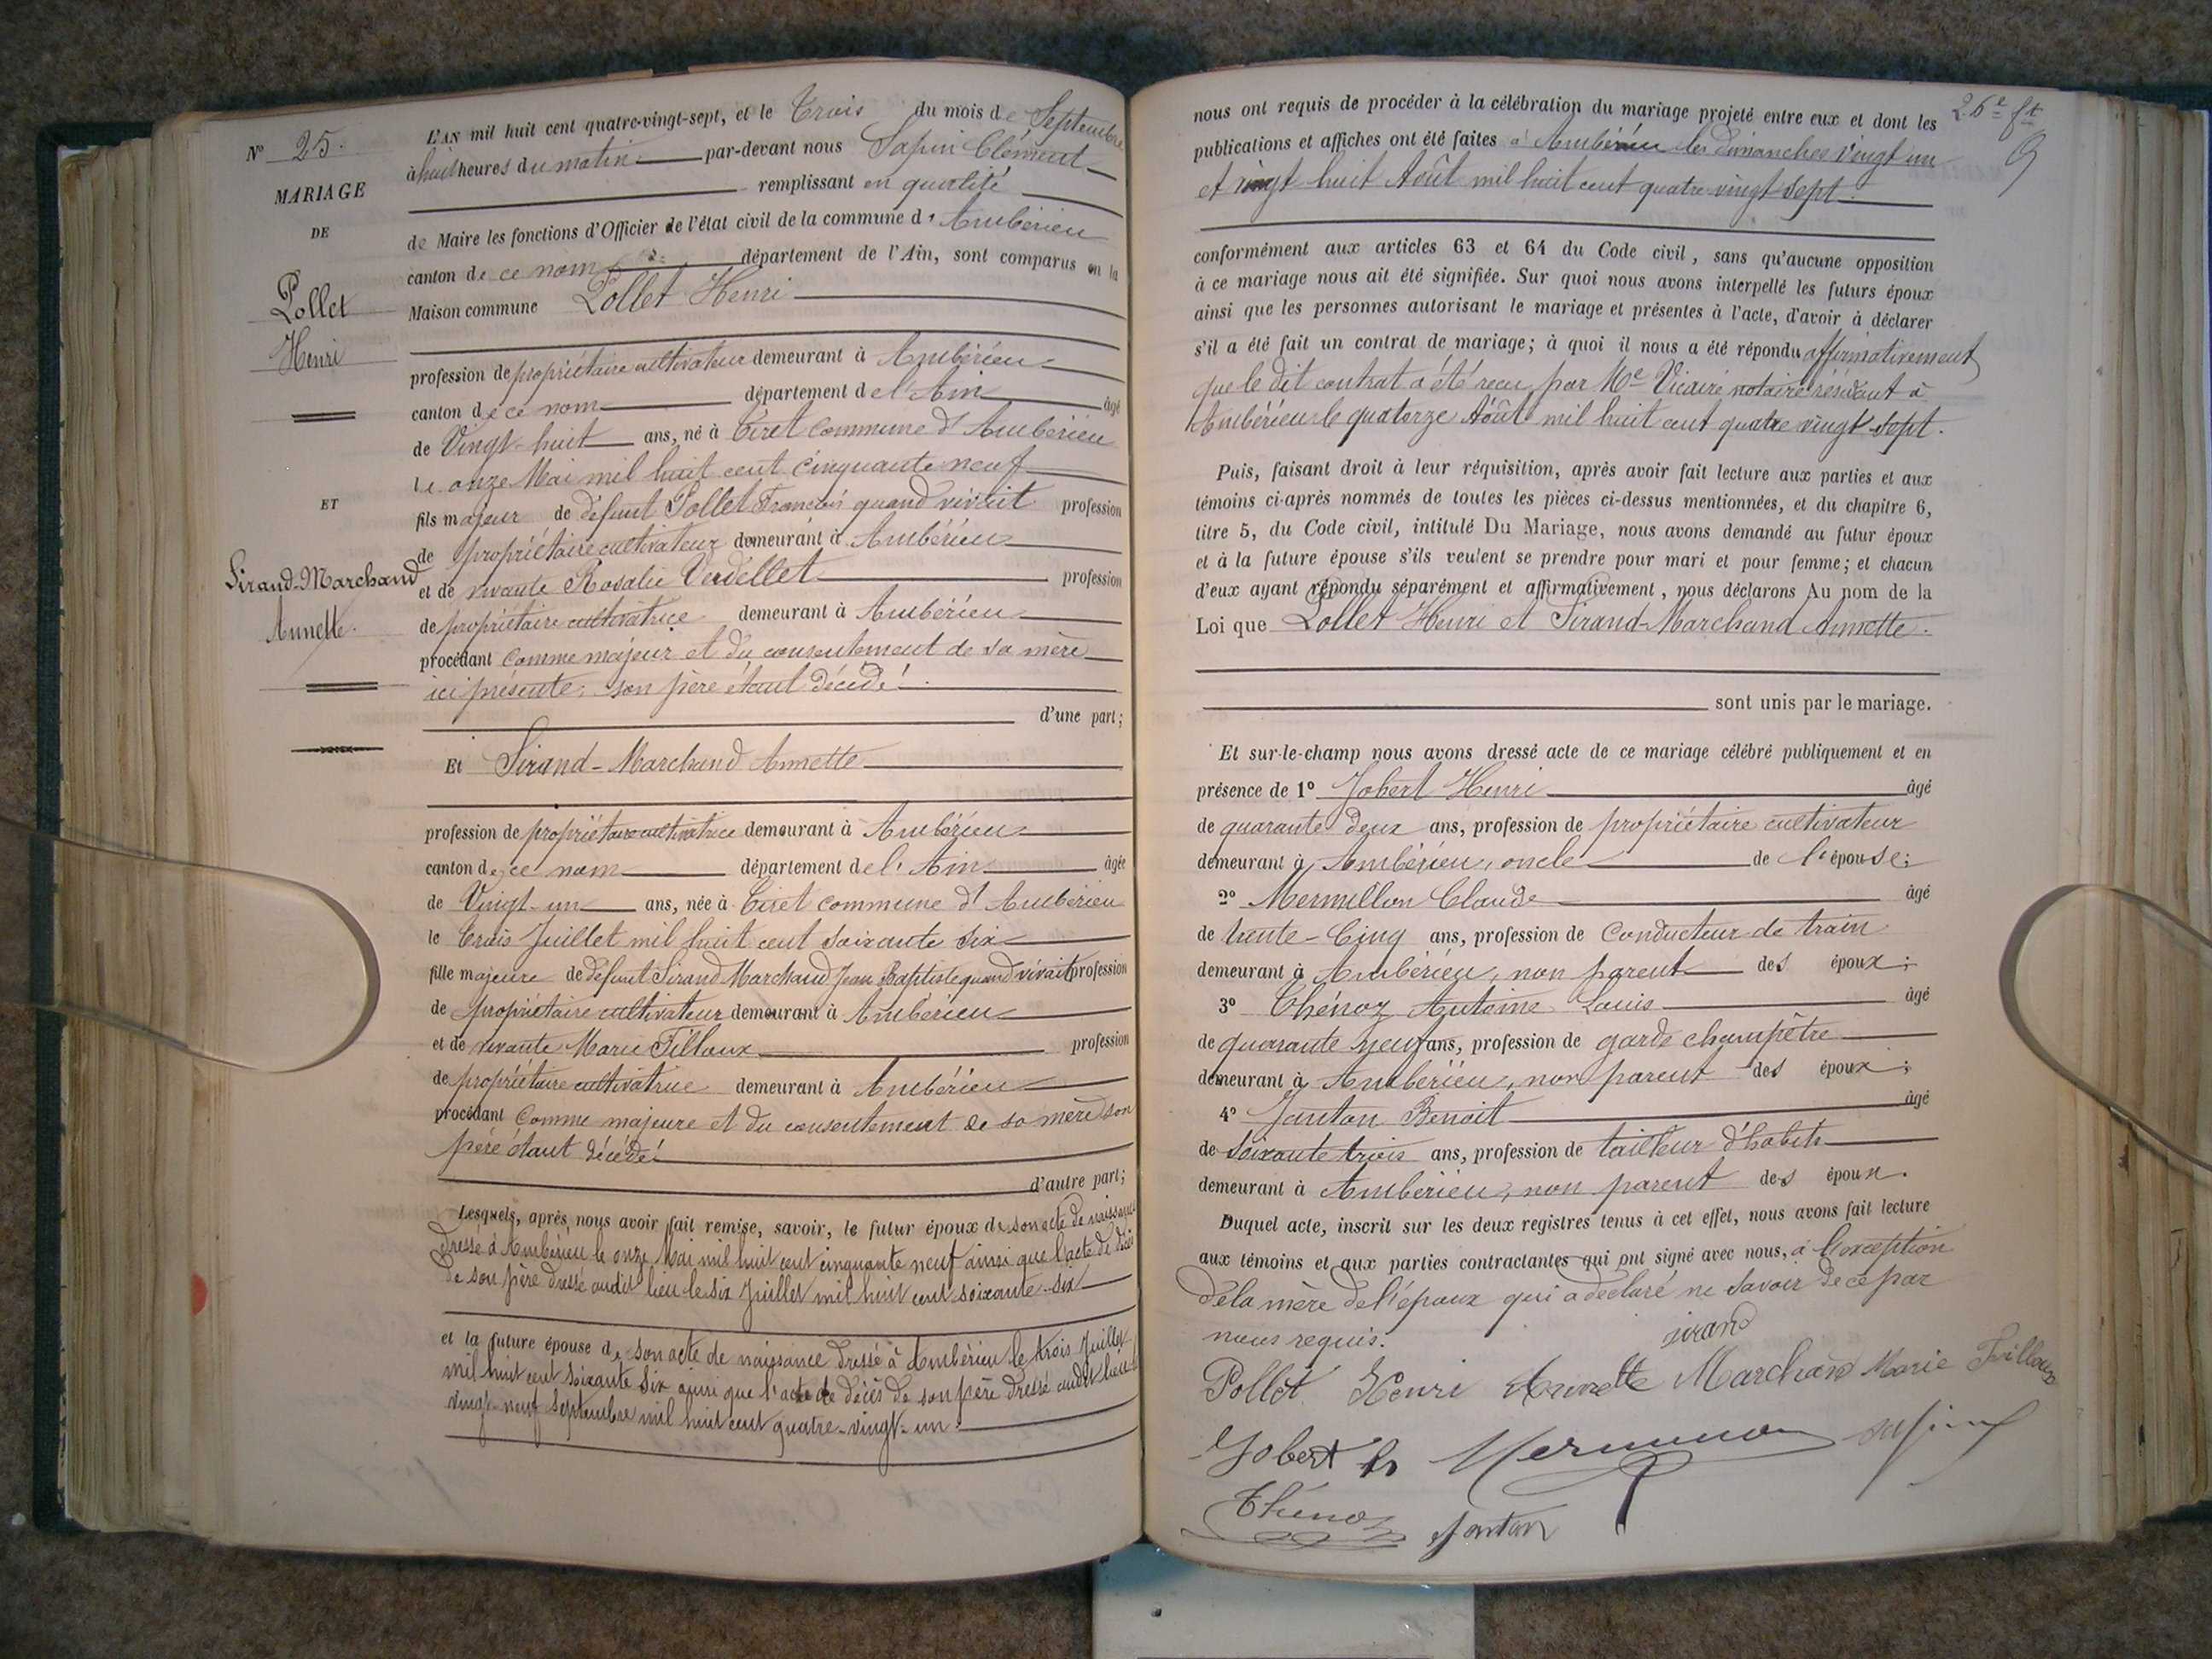 N° 25.
MARIAGE
DE
Pollet
Henri
ET
Sirand-Marchand
Annette.
L'AN mil huit cent quatre-vingt-sept, et le Trois du mois de Septembre
à huit heures du matin par-devant nous Sapin Clément
remplissant en qualité
de Maire les fonctions d'Officier de l'état civil de la commune d'Ambérieu
canton de ce nom département de l'Ain, sont comparus en la
Maison commune Pollet Henri
profession de propriétaire cultivateur demeurant à Ambérieu
canton de ce nom département de l'Ain âgé
de Vingt-huit ans, né à Tiret commune d'Ambérieu
le onze Mai mil huit cent cinquante neuf
fils majeur de défunt Pollet François quand vivait profession
de propriétaire cultivateur demeurant à Ambérieu
et de vivante Rosalie Verdellet profession
de propriétaire cultivatrice demeurant à Ambérieu
procédant comme majeur et du consentement de sa mère
ici présente, son père étant décédé.
d'une part;
Et Sirand-Marchand Annette
profession de propriétaire cultivatrice demeurant à Ambérieu
canton de ce nom département de l'Ain âgée
de Vingt-un ans, née à Tiret commune d'Ambérieu
le trois Juillet mil huit cent soixante six
fille majeure de défunt Sirand Marchand Jean Baptiste quand vivait profession
de propriétaire cultivateur demeurant à Ambérieu
et de vivante Marie Tilloux profession
de propriétaire cultivatrice demeurant à Ambérieu
procédant comme majeure et du consentement de sa mère son
père étant décédé
d'autre part;
Lesquels, après nous avoir fait remise, savoir, le futur époux de son acte de naissance
dressé à Ambérieu le onze Mai mil huit cent cinquante neuf ainsi que l'acte de décès
de son père dressé audit lieu le six Juillet mil huit cent soixante-six
et la future épouse de son acte de naissance dressé à Ambérieu le trois Juillet
mil huit cent soixante six ainsi que l'acte de décès de son père dressé audit lieu le
vingt-neuf Septembre mil huit cent quatre-vingt-un.
26e ft
nous ont requis de procéder à la célébration du mariage projeté entre eux et dont les
publications et affiches ont été faites à Ambérieu les dimanches vingt un
et vingt huit Août mil huit cent quatre vingt sept.
conformément aux articles 63 et 64 du Code civil, sans qu'aucune opposition
à ce mariage nous ait été signifiée. Sur quoi nous avons interpellé les futurs époux
ainsi que les personnes autorisant le mariage et présentes à l'acte, d'avoir à déclarer
s'il a été fait un contrat de mariage; à quoi il nous a été répondu affirmativement
que le dit contrat a été reçu par Me Vicaire notaire résidant à
Ambérieu le quatorze Août mil huit cent quatre vingt sept.
Puis, faisant droit à leur réquisition, après avoir fait lecture aux parties et aux
témoins ci-après nommés de toutes les pièces ci-dessus mentionnées, et du chapitre 6,
titre 5, du Code civil, intitulé Du Mariage, nous avons demandé au futur époux
et à la future épouse s'ils veulent se prendre pour mari et pour femme; et chacun
d'eux ayant répondu séparément et affirmativement, nous déclarons Au nom de la
Loi que Pollet Henri et Sirand-Marchand Annette.
sont unis par le mariage.
Et sur-le-champ nous avons dressé acte de ce mariage célébré publiquement et en
présence de 1° Jobert Henri âgé
de quarante deux ans, profession de propriétaire cultivateur
demeurant à Ambérieu, oncle de l'épouse;
2° Mermillon Claude âgé
de trente-cinq ans, profession de Conducteur de train
demeurant à Ambérieu, non parent des époux;
3° Thénoz Antoine Louis âgé
de quarante neuf ans, profession de garde champêtre
demeurant à Ambérieu, non parent des époux;
4° Janton Benoit âgé
de soixante trois ans, profession de tailleur d'habits
demeurant à Ambérieu, non parent des époux.
Duquel acte, inscrit sur les deux registres tenus à cet effet, nous avons fait lecture
aux témoins et aux parties contractantes qui ont signé avec nous, à l'exception
de la mère de l'époux qui a déclaré ne savoir de ce par
nous requis.
sirand
Pollet Henri Annette Marchand Marie
Jobert h Sapin
Thénoz Janton